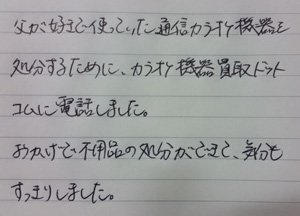 父が好きで使っていた通信カラオケ機器を
処分するために、カラオケ機器買取ドット
コムに電話しました。
おかげで不用品の処分ができて、気分も
すっきりしました。